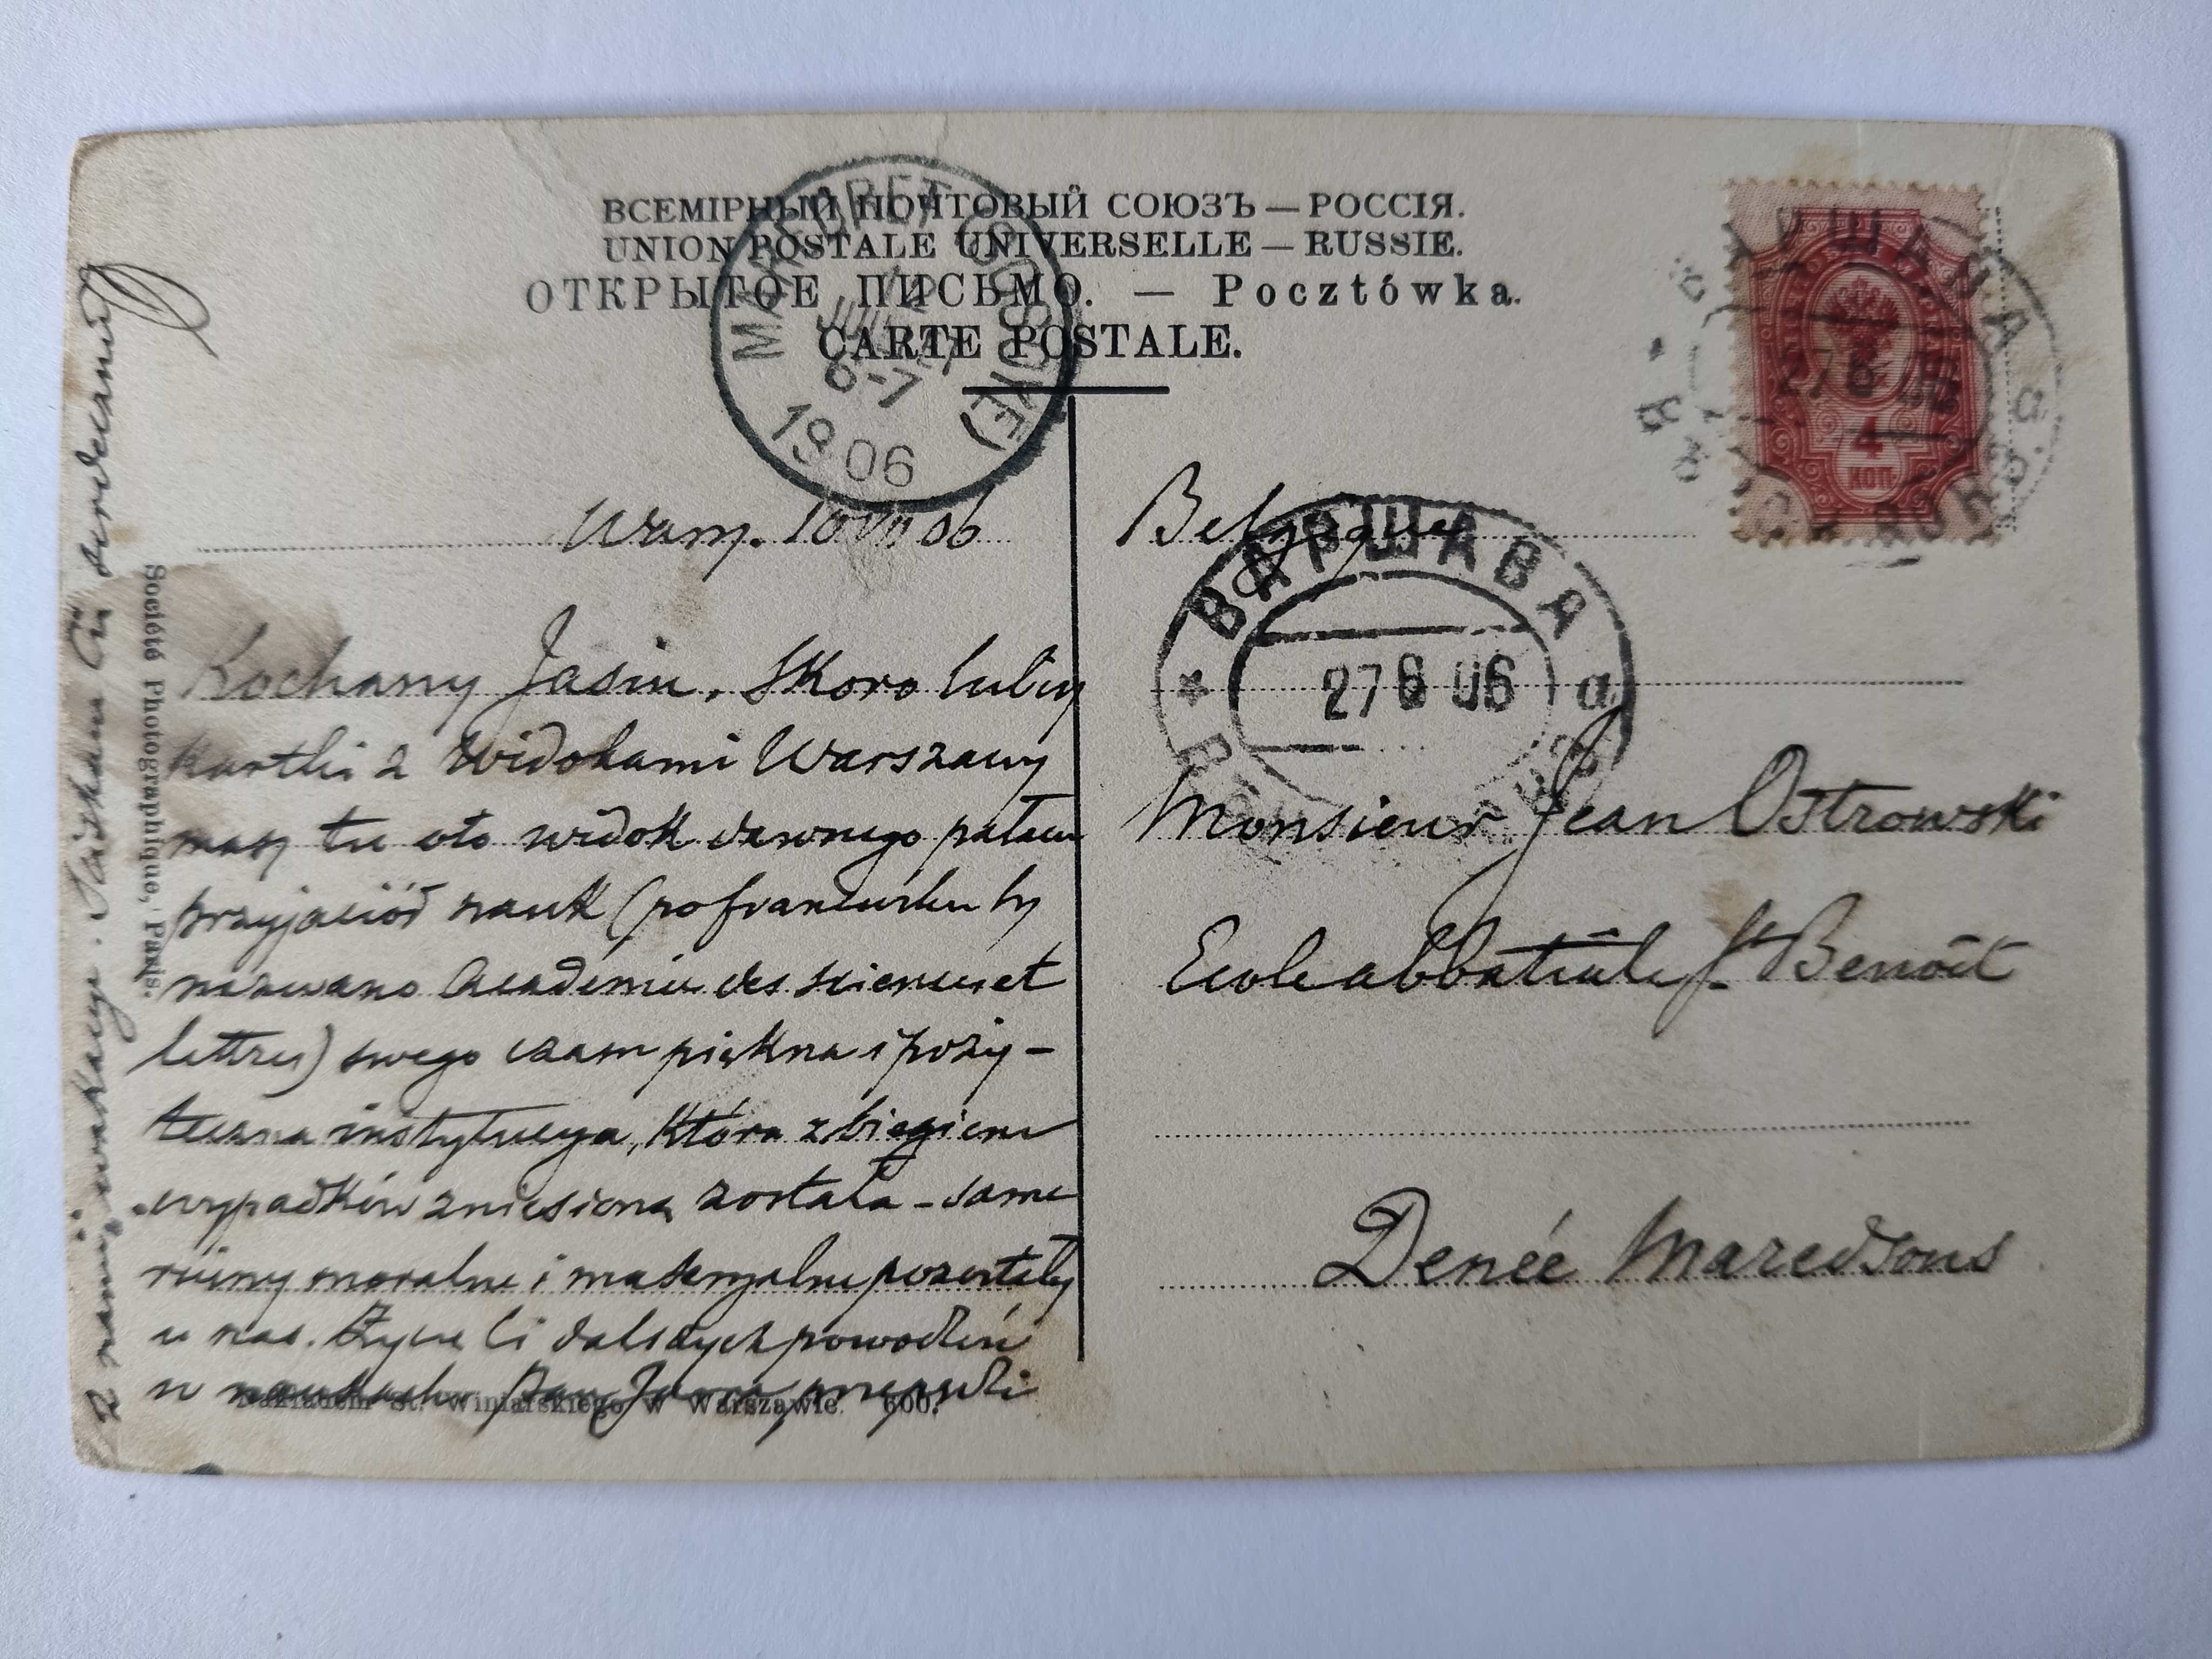 ВСЕМІРНЫЙ ПОЧТОВЫЙ СОЮЗЪ — РОССІЯ.
UNION POSTALE UNIVERSELLE — RUSSIE.
ОТКРЫТОЕ ПИСЬМО. — Pocztówka.
CARTE POSTALE.
MAREDRET (SOSOYE)
JUIL
6-7
1906
ВАРШАВА
27 6 06
4
КОП
Warsz. 10 VII 06
Belgique
ВАРШАВА
27 6 06
а
Kochany Jasiu, Skoro lubisz
kartki z widokami Warszawy
masz tu oto widok dawnego pałacu
przyjaciół nauk (po francusku by
nazwano Academie des sciences et
lettres) swego czasu piękna i poży-
teczna instytucya, która z biegiem
wypadków zniesioną została - same
ruiny moralne i materyalne pozostały
u nas. Życzę Ci dalszych powodzeń
w naukach. Pan Jan
z nami wakacye. Ściskam Cię serdecznie
Monsieur Jean Ostrowski
Ecole abbatiale St. Benoit
Denée Maredsous
Société Photographique, Paris.
Nakładem St. Winiarskiego w Warszawie. 600.